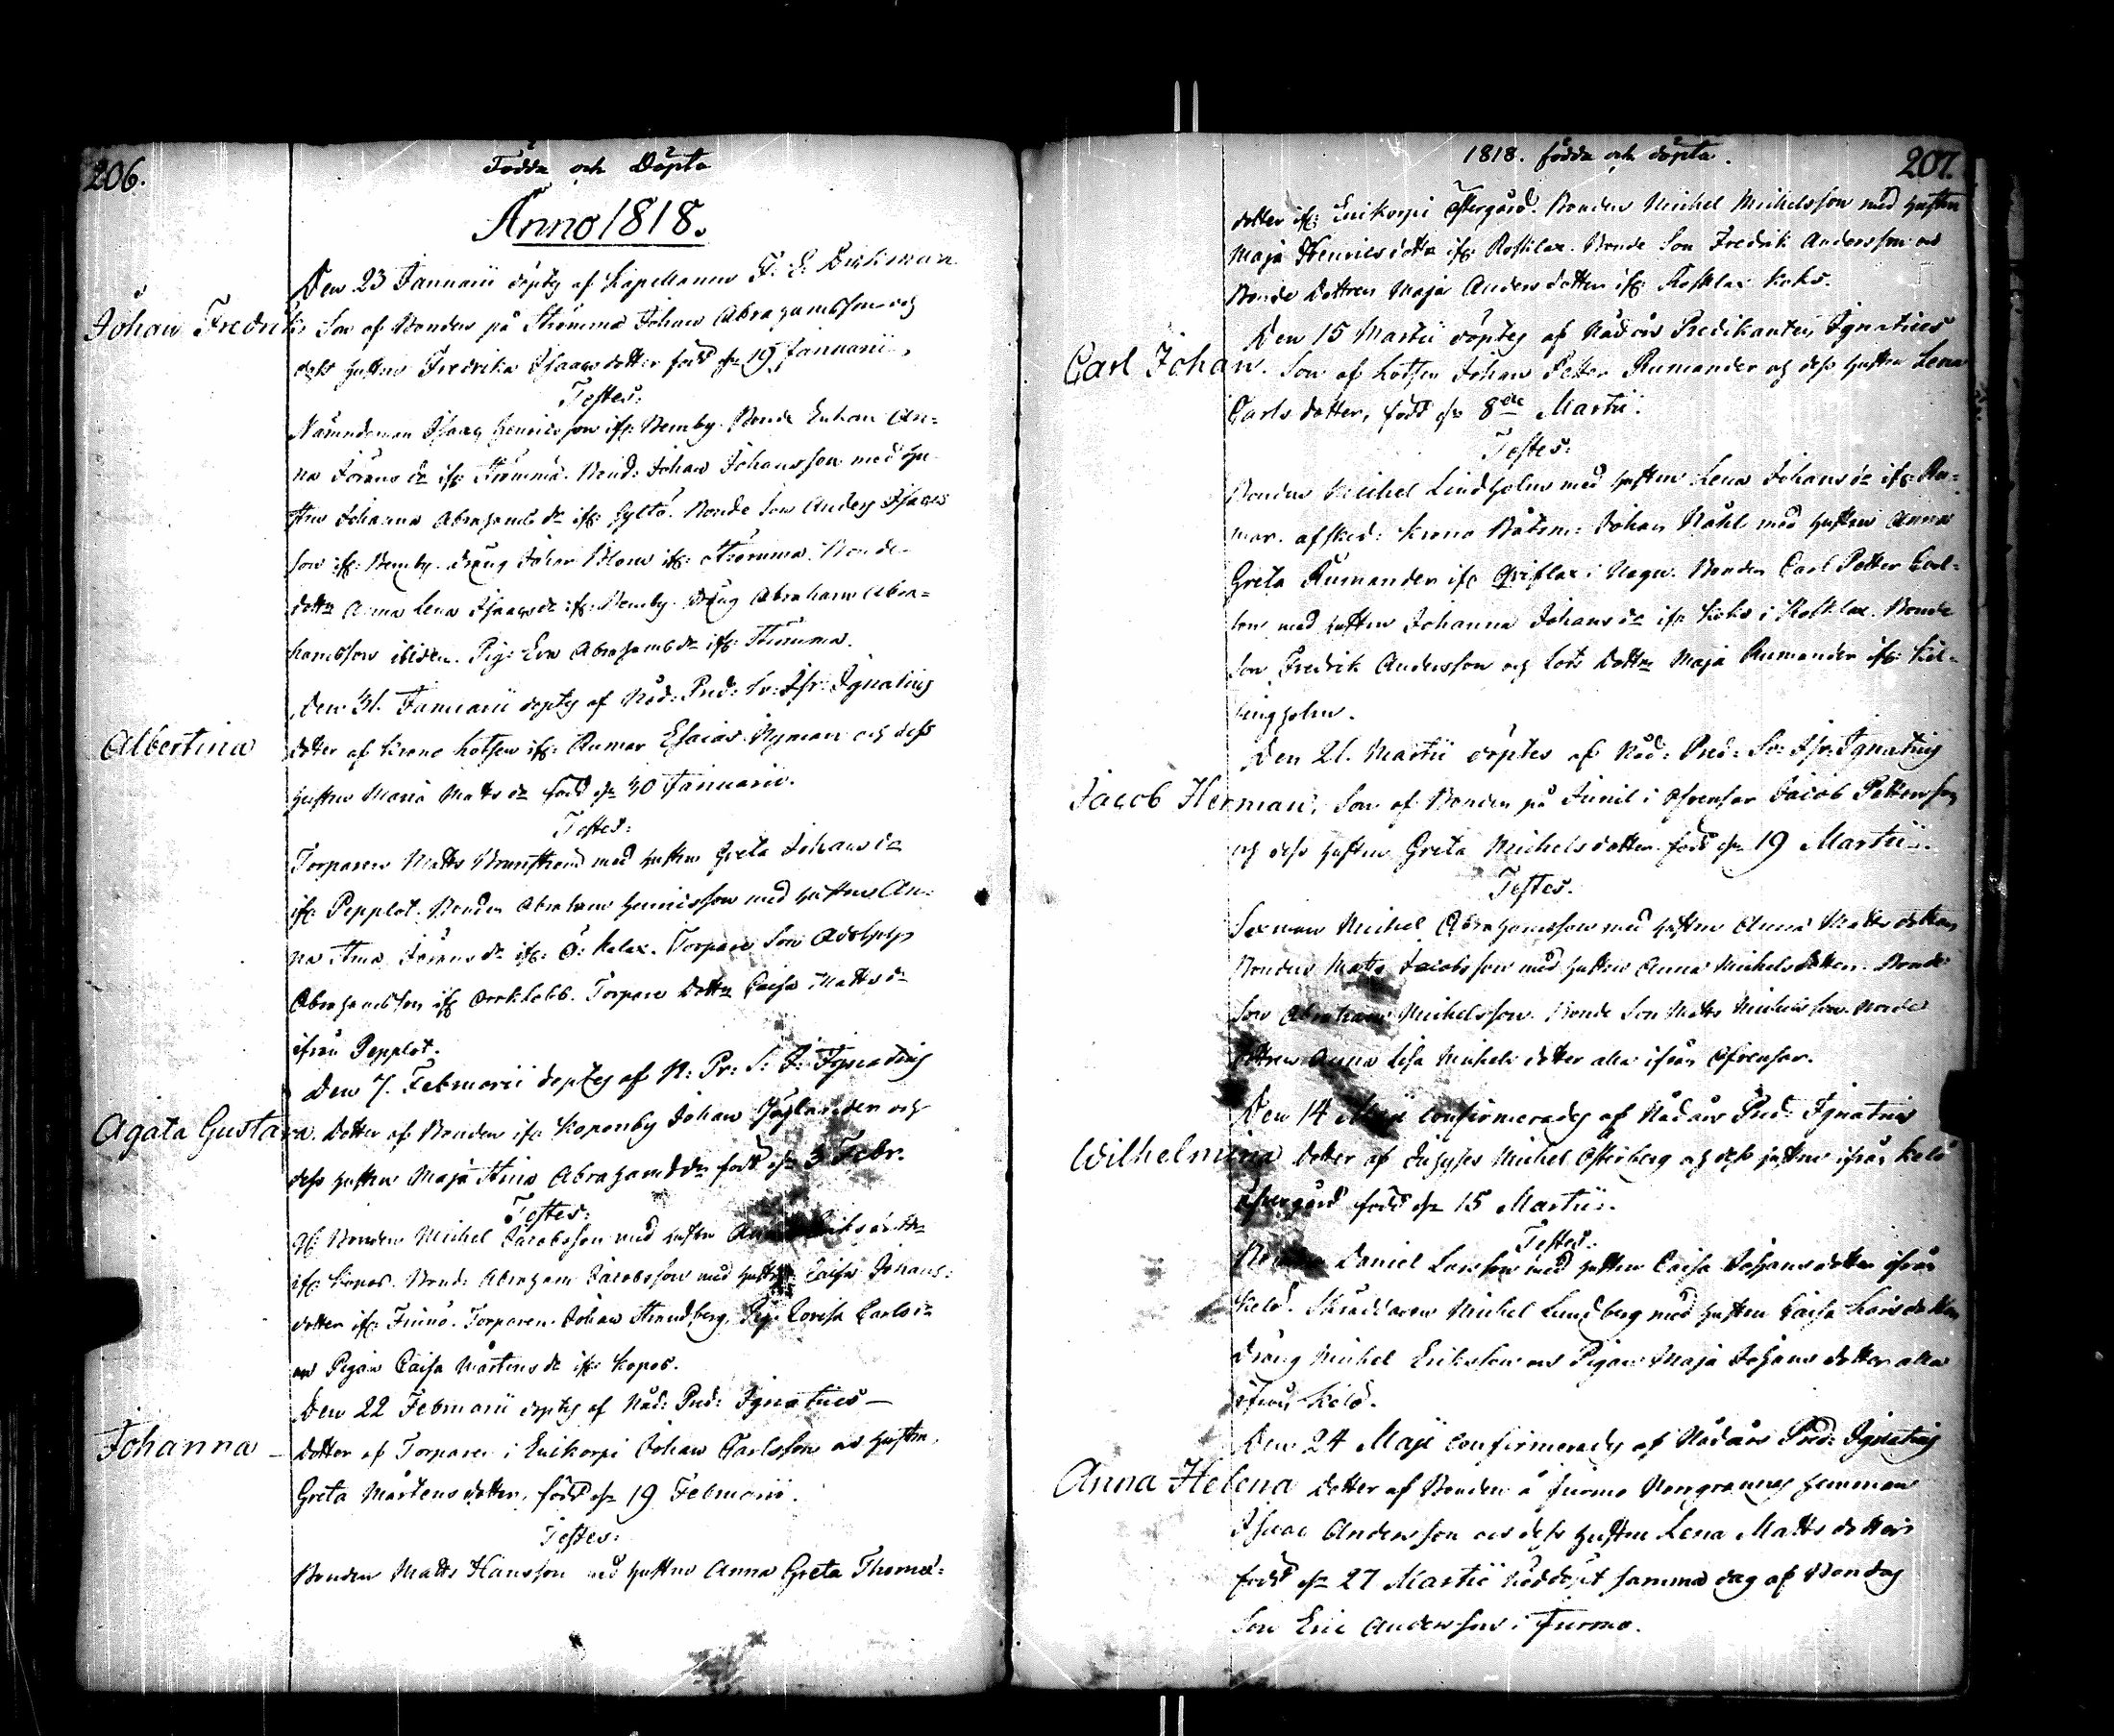 206.
Födde och Döpte
Anno 1818.
Den 23 Januarii döptes af Kapellanen F. E. Dickman
Johan Fredrik, Son af Bonden på Strömma Johan Abrahamsson och
dess hustru Fredrika Isaacsdotter född d. 19 Januarii.
Testes:
Nämndeman Isaac Henricsson ifr: Bemby. Bonde Enkan An=
na Jörans dr ifr: Strömma. Bond: Johan Johansson med hu-
stru Johanna Abrahams dr ifr: Hyltö. Bonde Son Anders Isaacs
son ifr: Bemby. dräng Johan Blom ifr: Strömma. Bonde-
dottr Anna Lena Isaacs dr ifr: Bemby. Dräng Abraham Abra=
hamsson ibidem. Pig: Eva Abrahams dr ifr: Strömma.
Den 31. Januarii döptes af Nåd: Pred: Sr: Isr: Ignatius
Albertina dotter af Krono Lotsen ifr: Aumar Esaias Nyman och dess
hustru Maria Matts dr född d. 30 Januarii.
Testes:
Torparen Matts Brunström med hustru Greta Johans dr
ifr Pepplot. Bonden Abraham Henricsson med hustru An=
na Stina Jörans dr ifr: Ö: Kelax. Torpare Son Adolph
Abrahamsson ifr Orrklobb. Torpare Dottr Caisa Matts dr
ifrån Pepplot.
Den 7. Februarii döptes af N: Pr: S: I: Ignatius
Agata Gustava. Dotter af Bonden ifr Koponby Johan Höglander och
dess hustru Maja Stina Abrahams dr född d. 3 Febr.
Testes:
Bonden Michel Jacobsson med hustru Eriksdottr
ifr: Kopos. Bond: Abraham Jacobsson med hustru Caisa Johans=
dotter ifr: Finnö. Torparen Johan Strandberg. Pig: Lovisa Carls dr
Pigan Caisa Mårtens dr ifr: Kopos.
Den 22 Februarii döptes af Nåd: Pred: Ignatius —
Johanna — dotter af Torparen i Enikorpi Johan Carlsson och hustru
Greta Mårtensdotter, född d. 19 Februarii.
Testes:
Bonden Matts Hansson med hustru Anna Greta Thomæ=
1818. födde och döpte.
207.
dotter ifr: Enikorpi Östergård. Bonden Michel Michelsson med hustru
Maja Henricsdottr ifr: Rosklax. Bonde Son Fredrik Andersson och
Bonde Dottren Maja Andersdotter ifr: Rosklax Koks.
Den 15 Martii döptes af Nådårs Predikanten Ignatius
Carl Johan. Son af Lotsen Johan Petter Rumander och dess hustru Lena
Carlsdotter, född d. 8de Martii.
Testes:
Bonden Michel Lindholm med hustru Lena Johans dr ifr: Au=
mar. afsked: Krono Båtsm: Johan Ståhl med hustru Anna
Greta Rumander ifr Griflax i Nagu. Bonden Carl Petter Carl=
son med hustru Johanna Johans dr ifr Koks i Rosklax. Bonde
Son Fredrik Andersson och Lots Dottr Maja Rumander ifr: Kel=
lingholm.
Den 21. Martii döptes af Nåd: Pred: Sr: Isr: Ignatius
Jacob Herman, Son af Bonden på Junil i Ahvensar Jacob Pettersson
och dess hustru Greta Michelsdotter. född d. 19 Martii.
Testes.
Sexman Michel Abrahamsson med hustru Anna Mattsdotter
Bonden Matts Jacobsson med hustru Anna Michelsdotter. Bonde
Son Abraham Michelsson. Bonde Son Matts Michelsson. Bonde
dottren Anna Lisa Michelsdotter alla ifrån Ahvensar.
Den 14 Maji confirmerades af Nådårs Pred: Ignatius
Wilhelmina Dotter af Inhyses Michel Österberg och dess hustru ifrån Kelö
Östergård född d. 15 Martii.
Testes:
Bonden Daniel Larsson med hustru Caisa Johansdotter ifrån
Kelö. Skräddaren Michel Lundberg med hustru Caisa Larsdotter
dräng Michel Eriksson och Pigan Maja Johansdotter alla
ifrån Kelö.
Den 24 Maji confirmerades af Nådårs Pred: Ignatius
Anna Helena dotter af Bonden å Jurmo Norrgrannas hemman
Isaac Andersson och dess hustru Lena Mattsdotter
född d. 27 Martii nöddöpt samma dag af Bondes
Son Eric Andersson i Jurmo.